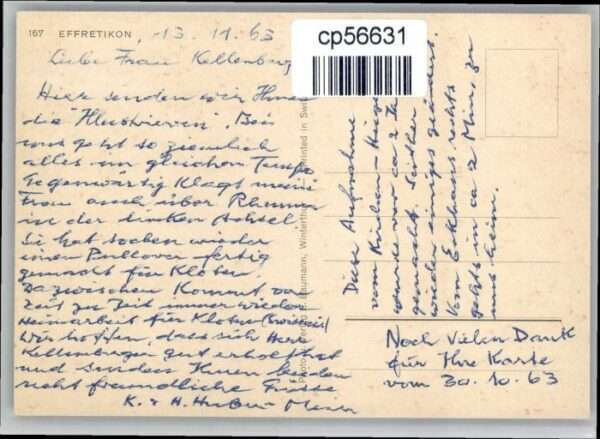 167 EFFRETIKON, 13.11.63
cp56631
Liebe Frau Kellenberger
Hier senden wir Ihnen
die "Illustrierten". Bei
uns geht so ziemlich
alles im gleichen Tempo
Gegenwärtig klagt meine
Frau auch über Rheuma
in der linken Achsel
Sie hat soeben wieder
einen Pullover fertig
gemacht für Kloten.
Dazwischen kommt von
Zeit zu Zeit immer wieder
Heimarbeit für Kloten
Wir hoffen, dass sich Herr
Kellenberger gut erholt hat
und senden Ihnen beiden
recht freundliche Grüsse
K. & H. Huber-Meier
Baumann, Winterthur Printed in Switz
Diese Aufnahme
vom Kirchen-Hügel
wurde vor ca 2 Jahr
gemacht. Seither
wieder einiges geändert.
Vom Eckhaus rechts
gehts in ca 2 Min. zu
uns heim.
Noch vielen Dank
für Ihre Karte
vom 30.10.63